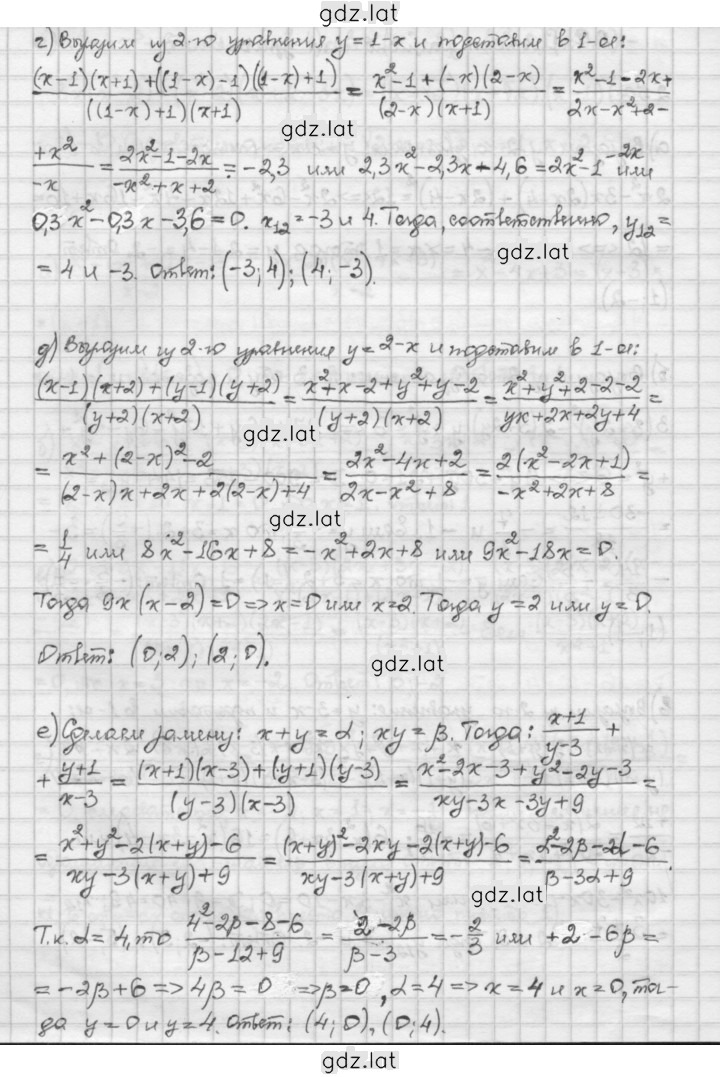 gdz.lat
г) Выразим из 2-го уравнения y = 1-x и подставим в 1-ое:
((x-1)(x+1)+((1-x)-1)((1-x)+1))/(((1-x)+1)(x+1)) = (x²-1+(-x)(2-x))/((2-x)(x+1)) = (x²-1-2x+)/(2x-x²+2-)
gdz.lat
(+x²)/(-x) = (2x²-1-2x)/(-x²+x+2) = -2,3 или 2,3x²-2,3x-4,6 = 2x²-1-2x или
0,3x²-0,3x-3,6=0. x₁₂=-3 и 4. Тогда, соответственно, y₁₂=
gdz.lat
= 4 и -3. Ответ: (-3; 4); (4; -3).
д) Выразим из 2-го уравнения y = 2-x и подставим в 1-ое:
((x-1)(x+2)+(y-1)(y+2))/((y+2)(x+2)) = (x²+x-2+y²+y-2)/((y+2)(x+2)) = (x²+y²+2-2-2)/(yx+2x+2y+4) =
gdz.lat
= (x²+(2-x)²-2)/((2-x)x+2x+2(2-x)+4) = (2x²-4x+2)/(2x-x²+8) = (2(x²-2x+1))/(-x²+2x+8) =
gdz.lat
= 1/4 или 8x²-16x+8 = -x²+2x+8 или 9x²-18x=0.
Тогда 9x(x-2)=0 => x=0 или x=2. Тогда y=2 или y=0.
Ответ: (0; 2); (2; 0).
gdz.lat
е) Сделаем замену: x+y=α; xy=β. Тогда: (x+1)/(y-3) +
+ (y+1)/(x-3) = ((x+1)(x-3)+(y+1)(y-3))/((y-3)(x-3)) = (x²-2x-3+y²-2y-3)/(xy-3x-3y+9) =
= (x²+y²-2(x+y)-6)/(xy-3(x+y)+9) = ((x+y)²-2xy-2(x+y)-6)/(xy-3(x+y)+9) = (α²-2β-2α-6)/(β-3α+9).
gdz.lat
Т.к. α=4, то (4²-2β-8-6)/(β-12+9) = (2-2β)/(β-3) = -2/3 или +2-6β=
= -2β+6 => 4β=0 => β=0, α=4 => x=4 и x=0, то-
да y=0 и y=4. Ответ: (4; 0), (0; 4).
gdz.lat